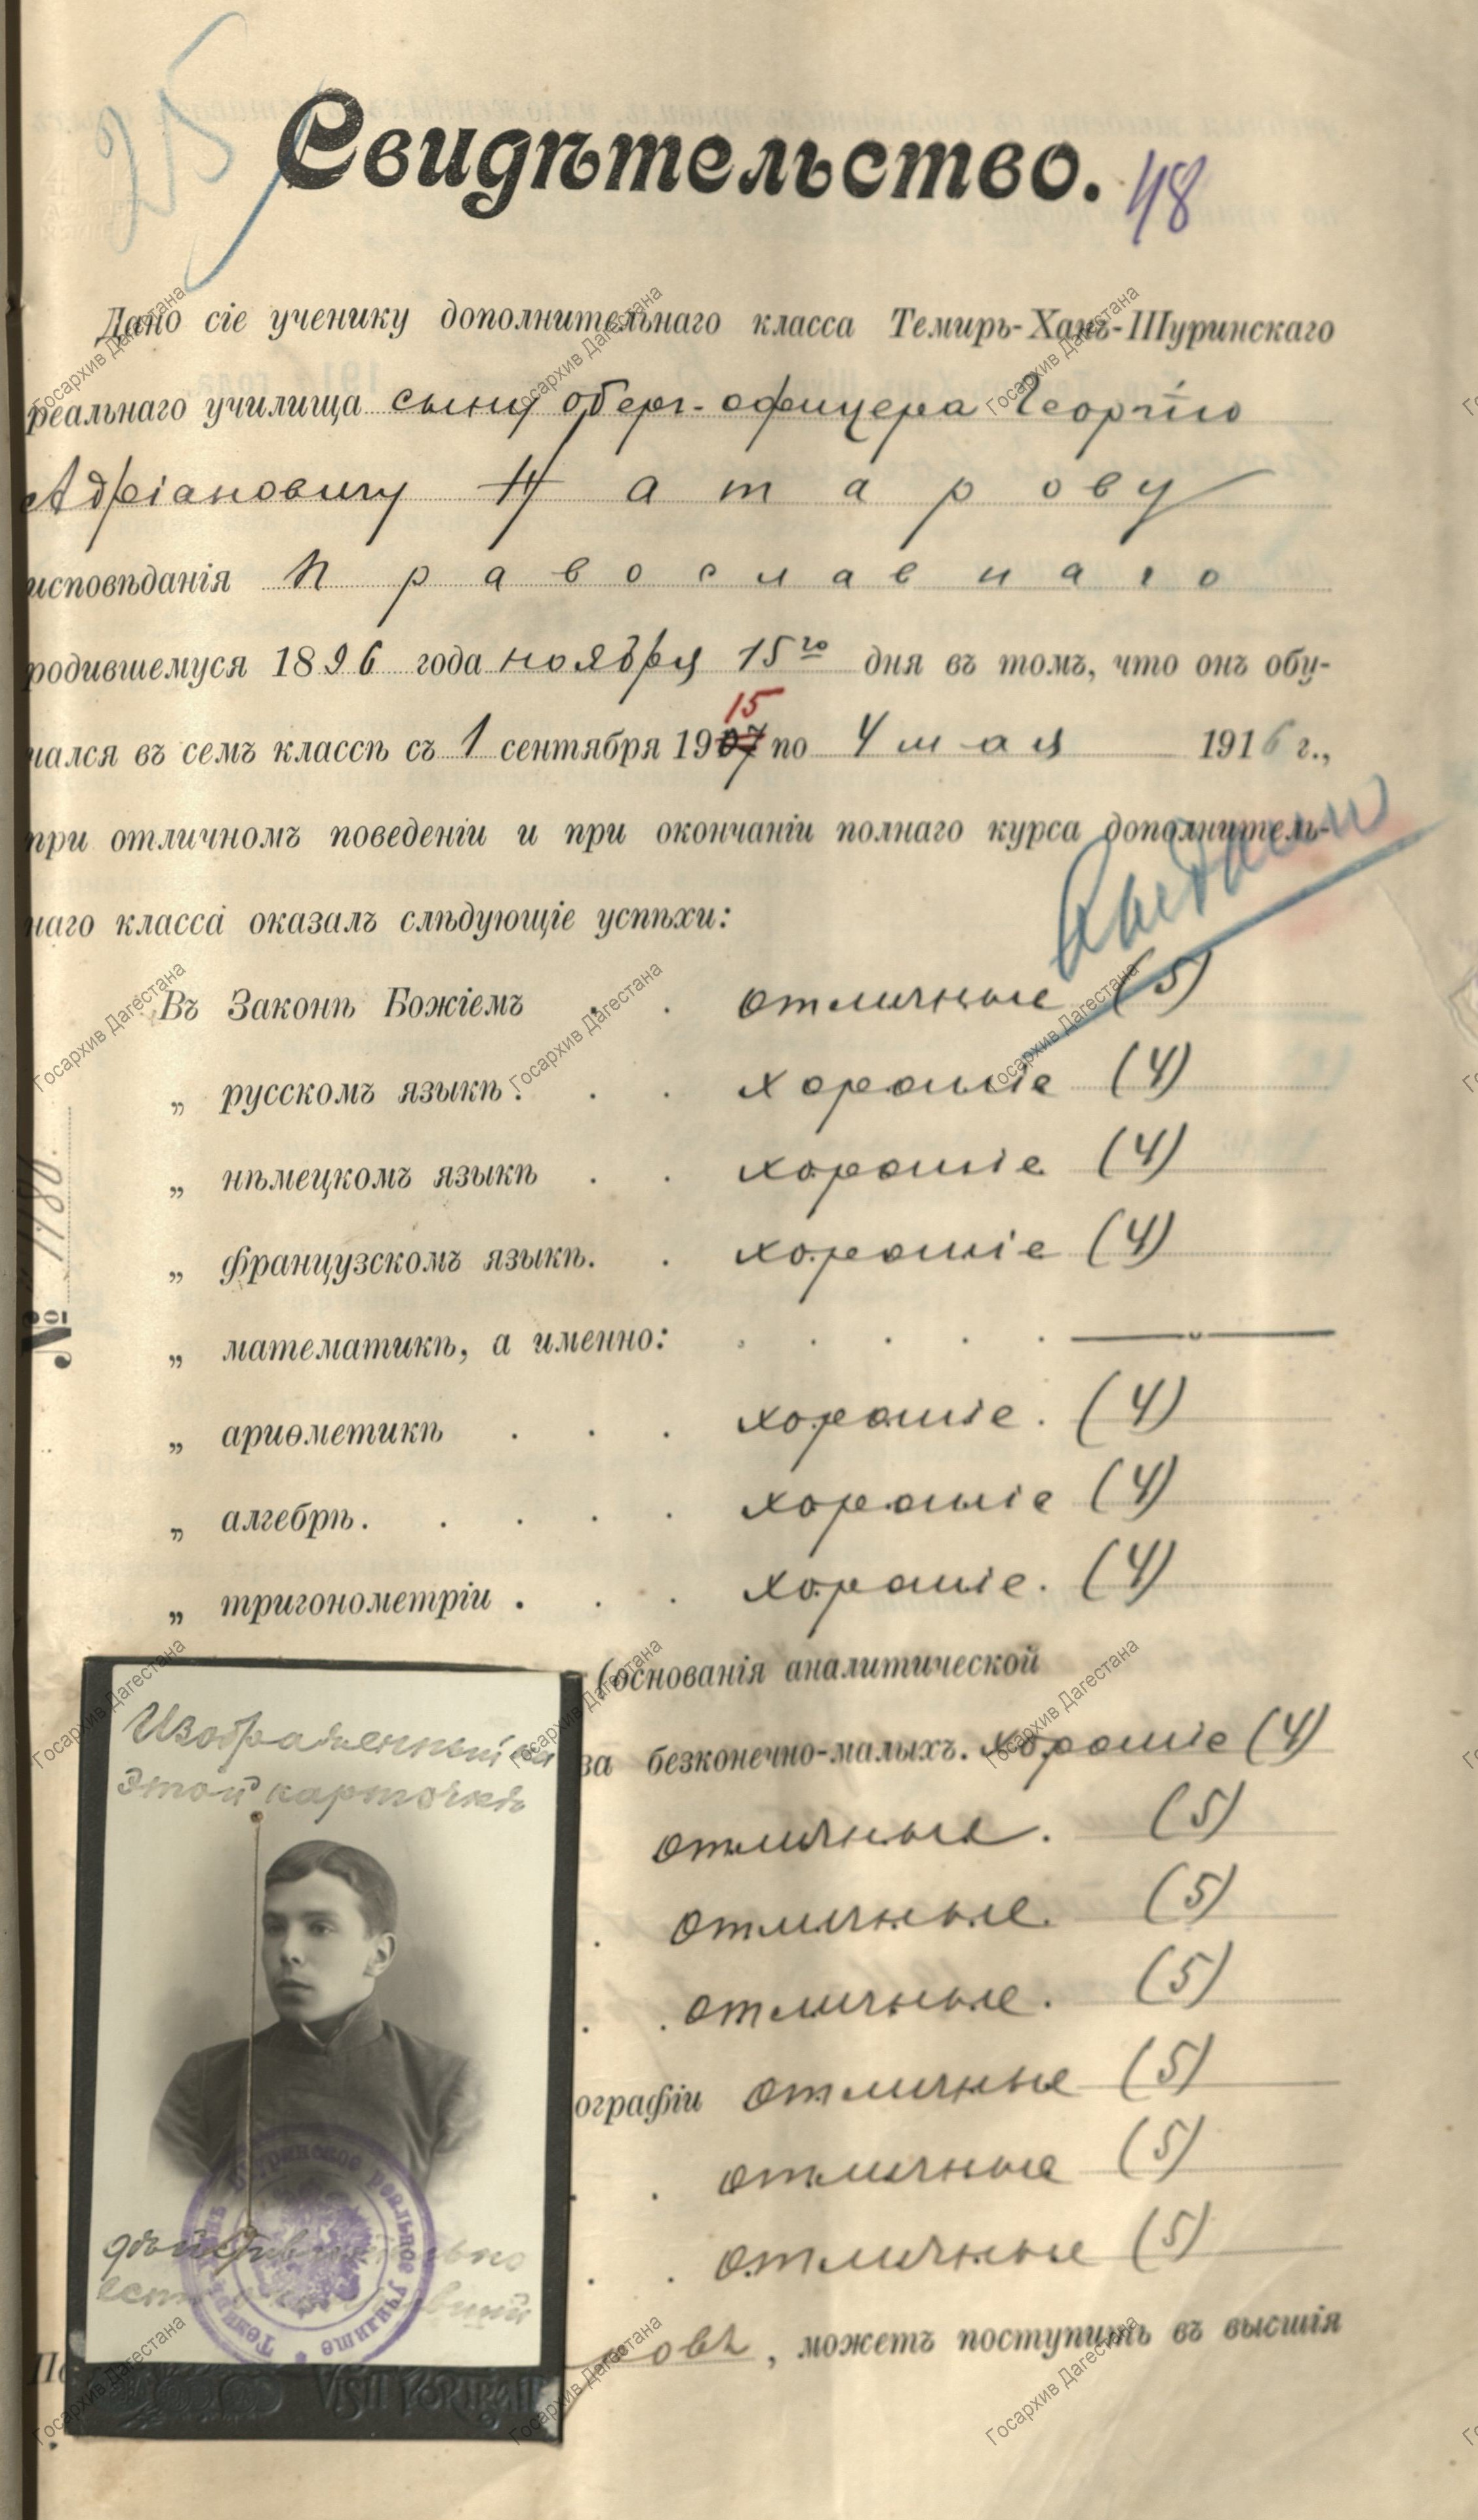 25
Свидѣтельство.
48
Дано сіе ученику дополнительнаго класса Темиръ-Ханъ-Шуринскаго
реальнаго училища сыну обер-офицера Георгію
Адріановичу Натарову
исповѣданія православнаго
родившемуся 1896 года ноября 15го дня въ томъ, что онъ обу-
15
чался въ семъ классѣ съ 1 сентября 1907 по 4 мая 1916 г.,
при отличномъ поведеніи и при окончаніи полнаго курса дополнитель-
наго класса оказалъ слѣдующіе успѣхи:
Въ Законѣ Божіемъ . . отличные (5)
„ русскомъ языкѣ . . . хорошіе (4)
„ нѣмецкомъ языкѣ . . хорошіе (4)
„ французскомъ языкѣ. . хорошіе (4)
„ математикѣ, а именно: . . . . .
„ ариѳметикѣ . . . хорошіе. (4)
„ алгебрѣ. . . . . хорошіе (4)
„ тригонометріи . . . хорошіе. (4)
(основанія аналитической
ва безконечно-малыхъ. хорошіе (4)
отличные. (5)
. отличные. (5)
. . отличные. (5)
ографіи отличные (5)
. . отличные (5)
. . отличные (5)
По овъ, можетъ поступить въ высшія
№ 1180.
Изображенный на
этой карточкѣ
действительно
есть
Темиръ-Ханъ-Шуринское реальное училище
VISIT PORTRAIT
Госархив Дагестана